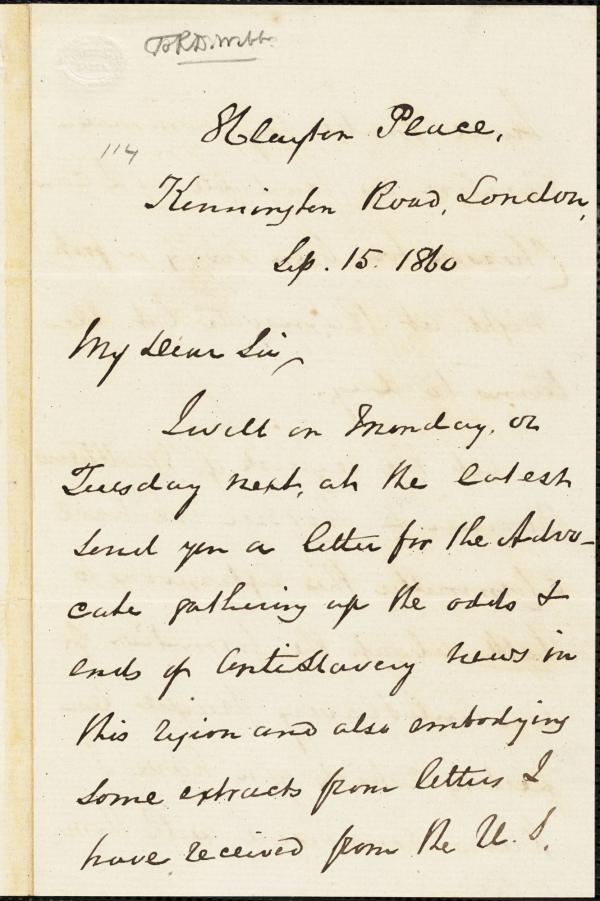 To R. D. Webb.
114
Clayton Place,
Kennington Road, London,
Sep. 15. 1860
My Dear Sir,
I will on Monday, or
Tuesday next, at the latest
send you a letter for the Advo-
cate gathering up the odds &
ends of AntiSlavery news in
this region and also embodying
some extracts from letters I
have received from the U. S.